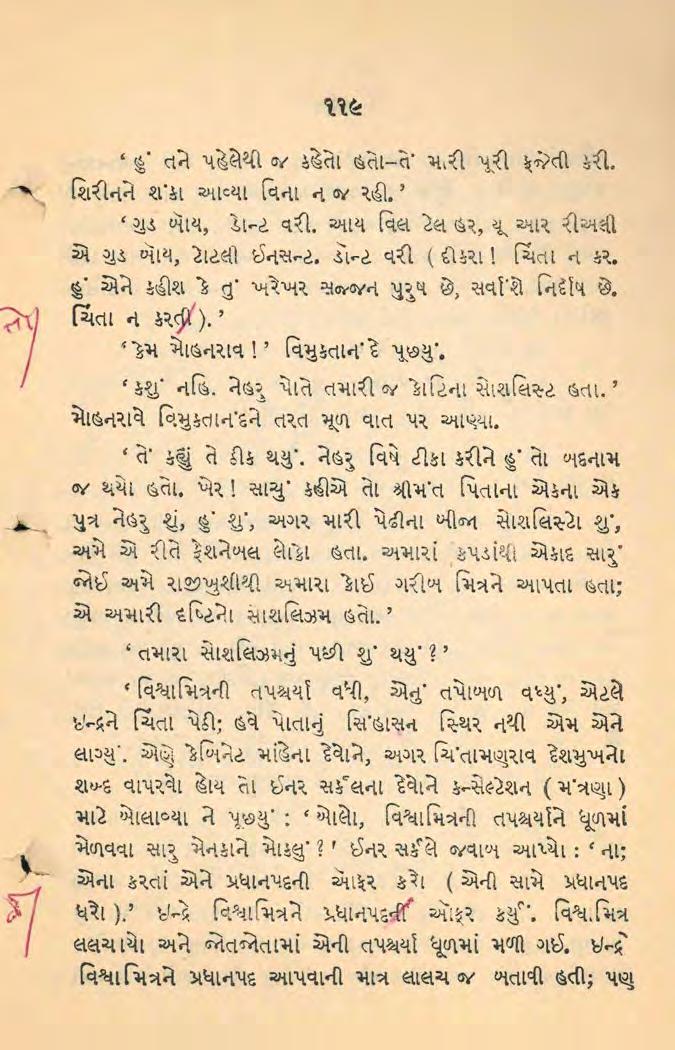 ૧૧૯
‘ હું તને પહેલેથી જ કહેતો હતો–તેં મારી પૂરી ફજેતી કરી.
શિરીનને શંકા આવ્યા વિના ન જ રહી. ’
‘ ગુડ બૉય, ડોન્ટ વરી. આય વિલ ટેલ હર, યૂ આર રીઅલી
એ ગુડ બૉય, ટોટલી ઈનસન્ટ. ડૉન્ટ વરી ( દીકરા ! ચિંતા ન કર.
હું એને કહીશ કે તું ખરેખર સજ્જન પુરુષ છે, સર્વાંશે નિર્દોષ છે.
ચિંતા ન કરતી ). ’
તો
‘ કેમ મોહનરાવ ! ’ વિમુક્તાનંદે પૂછયું.
‘ કશું નહિ. નેહરુ પોતે તમારી જ કોટિના સોશલિસ્ટ હતા. ’
મોહનરાવે વિમુક્તાનંદને તરત મૂળ વાત પર આણ્યા.
‘ તેં કહ્યું તે ઠીક થયું. નેહરુ વિષે ટીકા કરીને હું તો બદનામ
જ થયો હતો. ખેર ! સાચું કહીએ તો શ્રીમંત પિતાના એકના એક
પુત્ર નેહરુ શું, હું શું, અગર મારી પેઢીના બીજા સોશલિસ્ટો શું,
અમે એ રીતે ફેશનેબલ લોકો હતા. અમારાં કપડાંથી એકાદ સારું
જોઈ અમે રાજીખુશીથી અમારા કોઈ ગરીબ મિત્રને આપતા હતા;
એ અમારી દષ્ટિનો સોશલિઝમ હતો. ’
‘ તમારા સોશલિઝમનું પછી શું થયું ? ’
‘ વિશ્વામિત્રની તપશ્ચર્યા વધી, એનું તપોબળ વધ્યું, એટલે
ઇન્દ્રને ચિંતા પેઠી; હવે પોતાનું સિંહાસન સ્થિર નથી એમ એને
લાગ્યું. એણે કેબિનેટ માંહેના દેવોને, અગર ચિંતામણરાવ દેશમુખનો
શબ્દ વાપરવો હોય તો ઈનર સર્કલના દેવોને કન્સેલ્ટેશન ( મંત્રણા )
માટે બોલાવ્યા ને પૂછયું : ‘ બોલો, વિશ્વામિત્રની તપશ્ચર્યાને ધૂળમાં
મેળવવા સારુ મેનકાને મોકલું ? ’ ઈનર સર્કલે જવાબ આપ્યો : ‘ ના;
એના કરતાં એને પ્રધાનપદની ઑફર કરો ( એની સામે પ્રધાનપદ
ધરો ).’ ઇન્દ્રે વિશ્વામિત્રને પ્રધાનપદની ઑફર કર્યું. વિશ્વામિત્ર
લલચાયો અને જોતજોતામાં એની તપશ્ચર્યા ધૂળમાં મળી ગઈ. ઇન્દ્રે
વિશ્વામિત્રને પ્રધાનપદ આપવાની માત્ર લાલચ જ બતાવી હતી; પણ